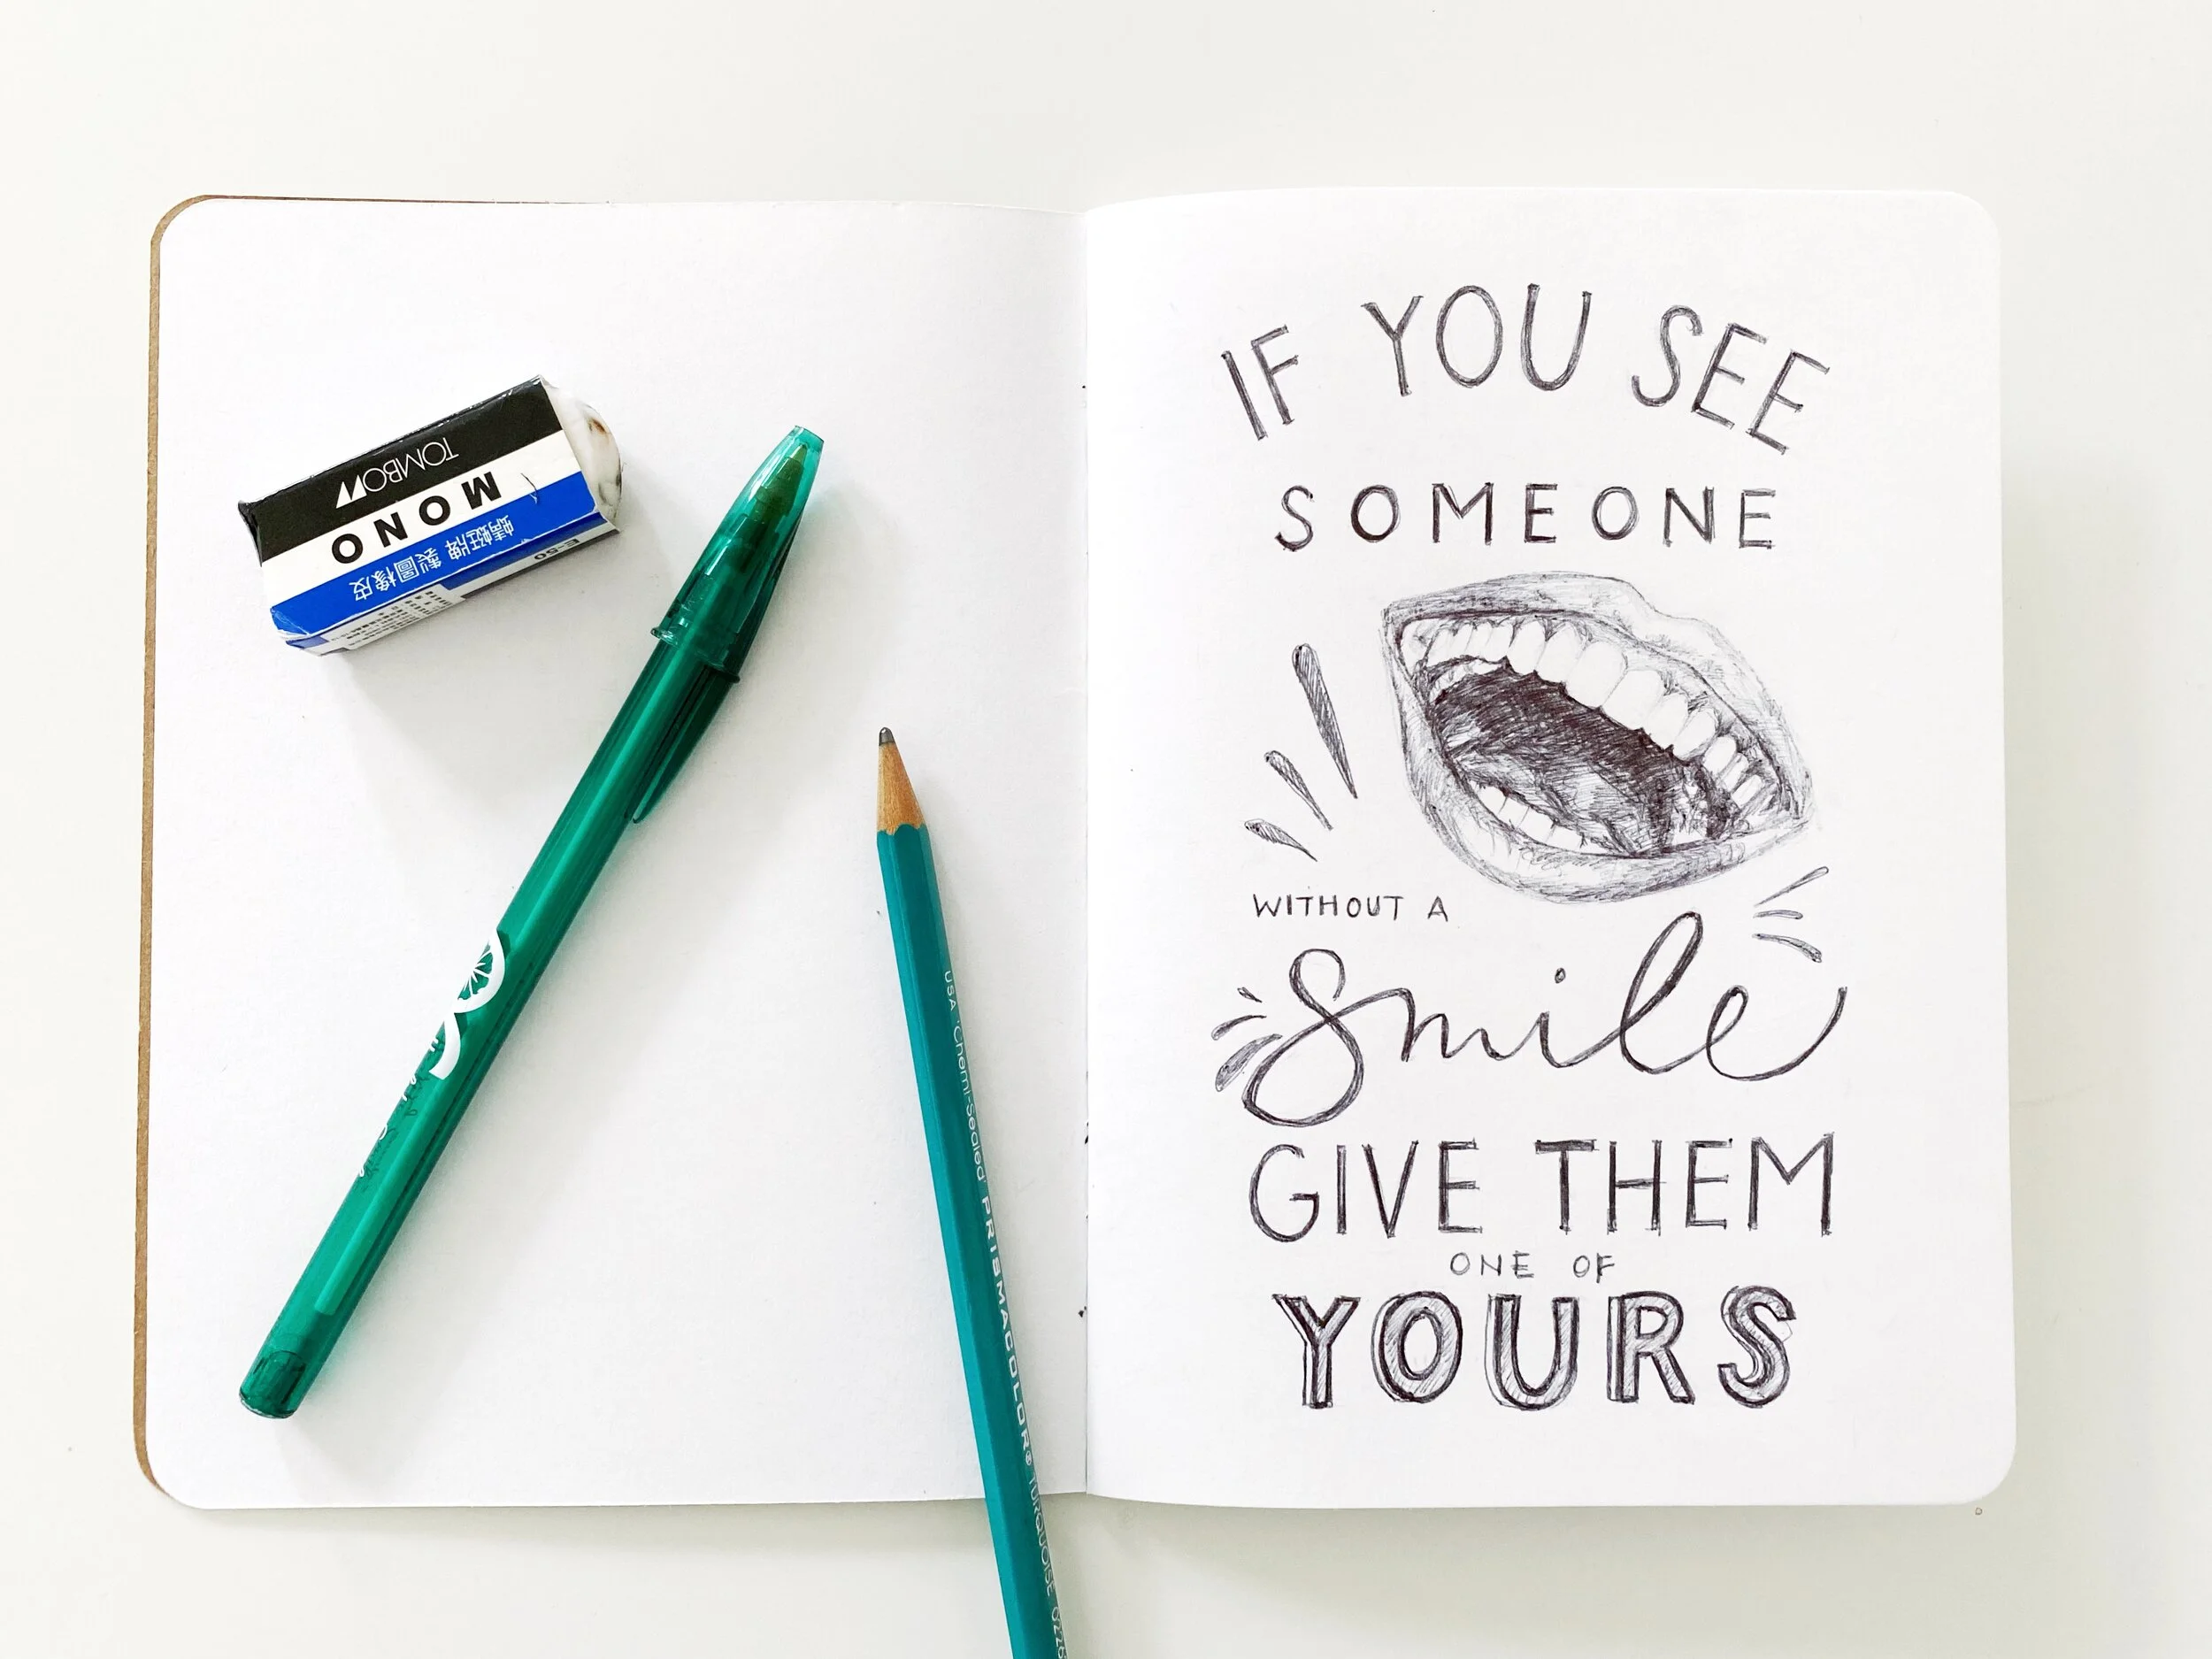 TOMBOW
MONO
蜻蜓牌 製圖橡皮
E-50
USA Chemi-Sealed PRISMACOLOR® TURQUOISE
IF YOU SEE
SOMEONE
WITHOUT A
Smile
GIVE THEM
ONE OF
YOURS